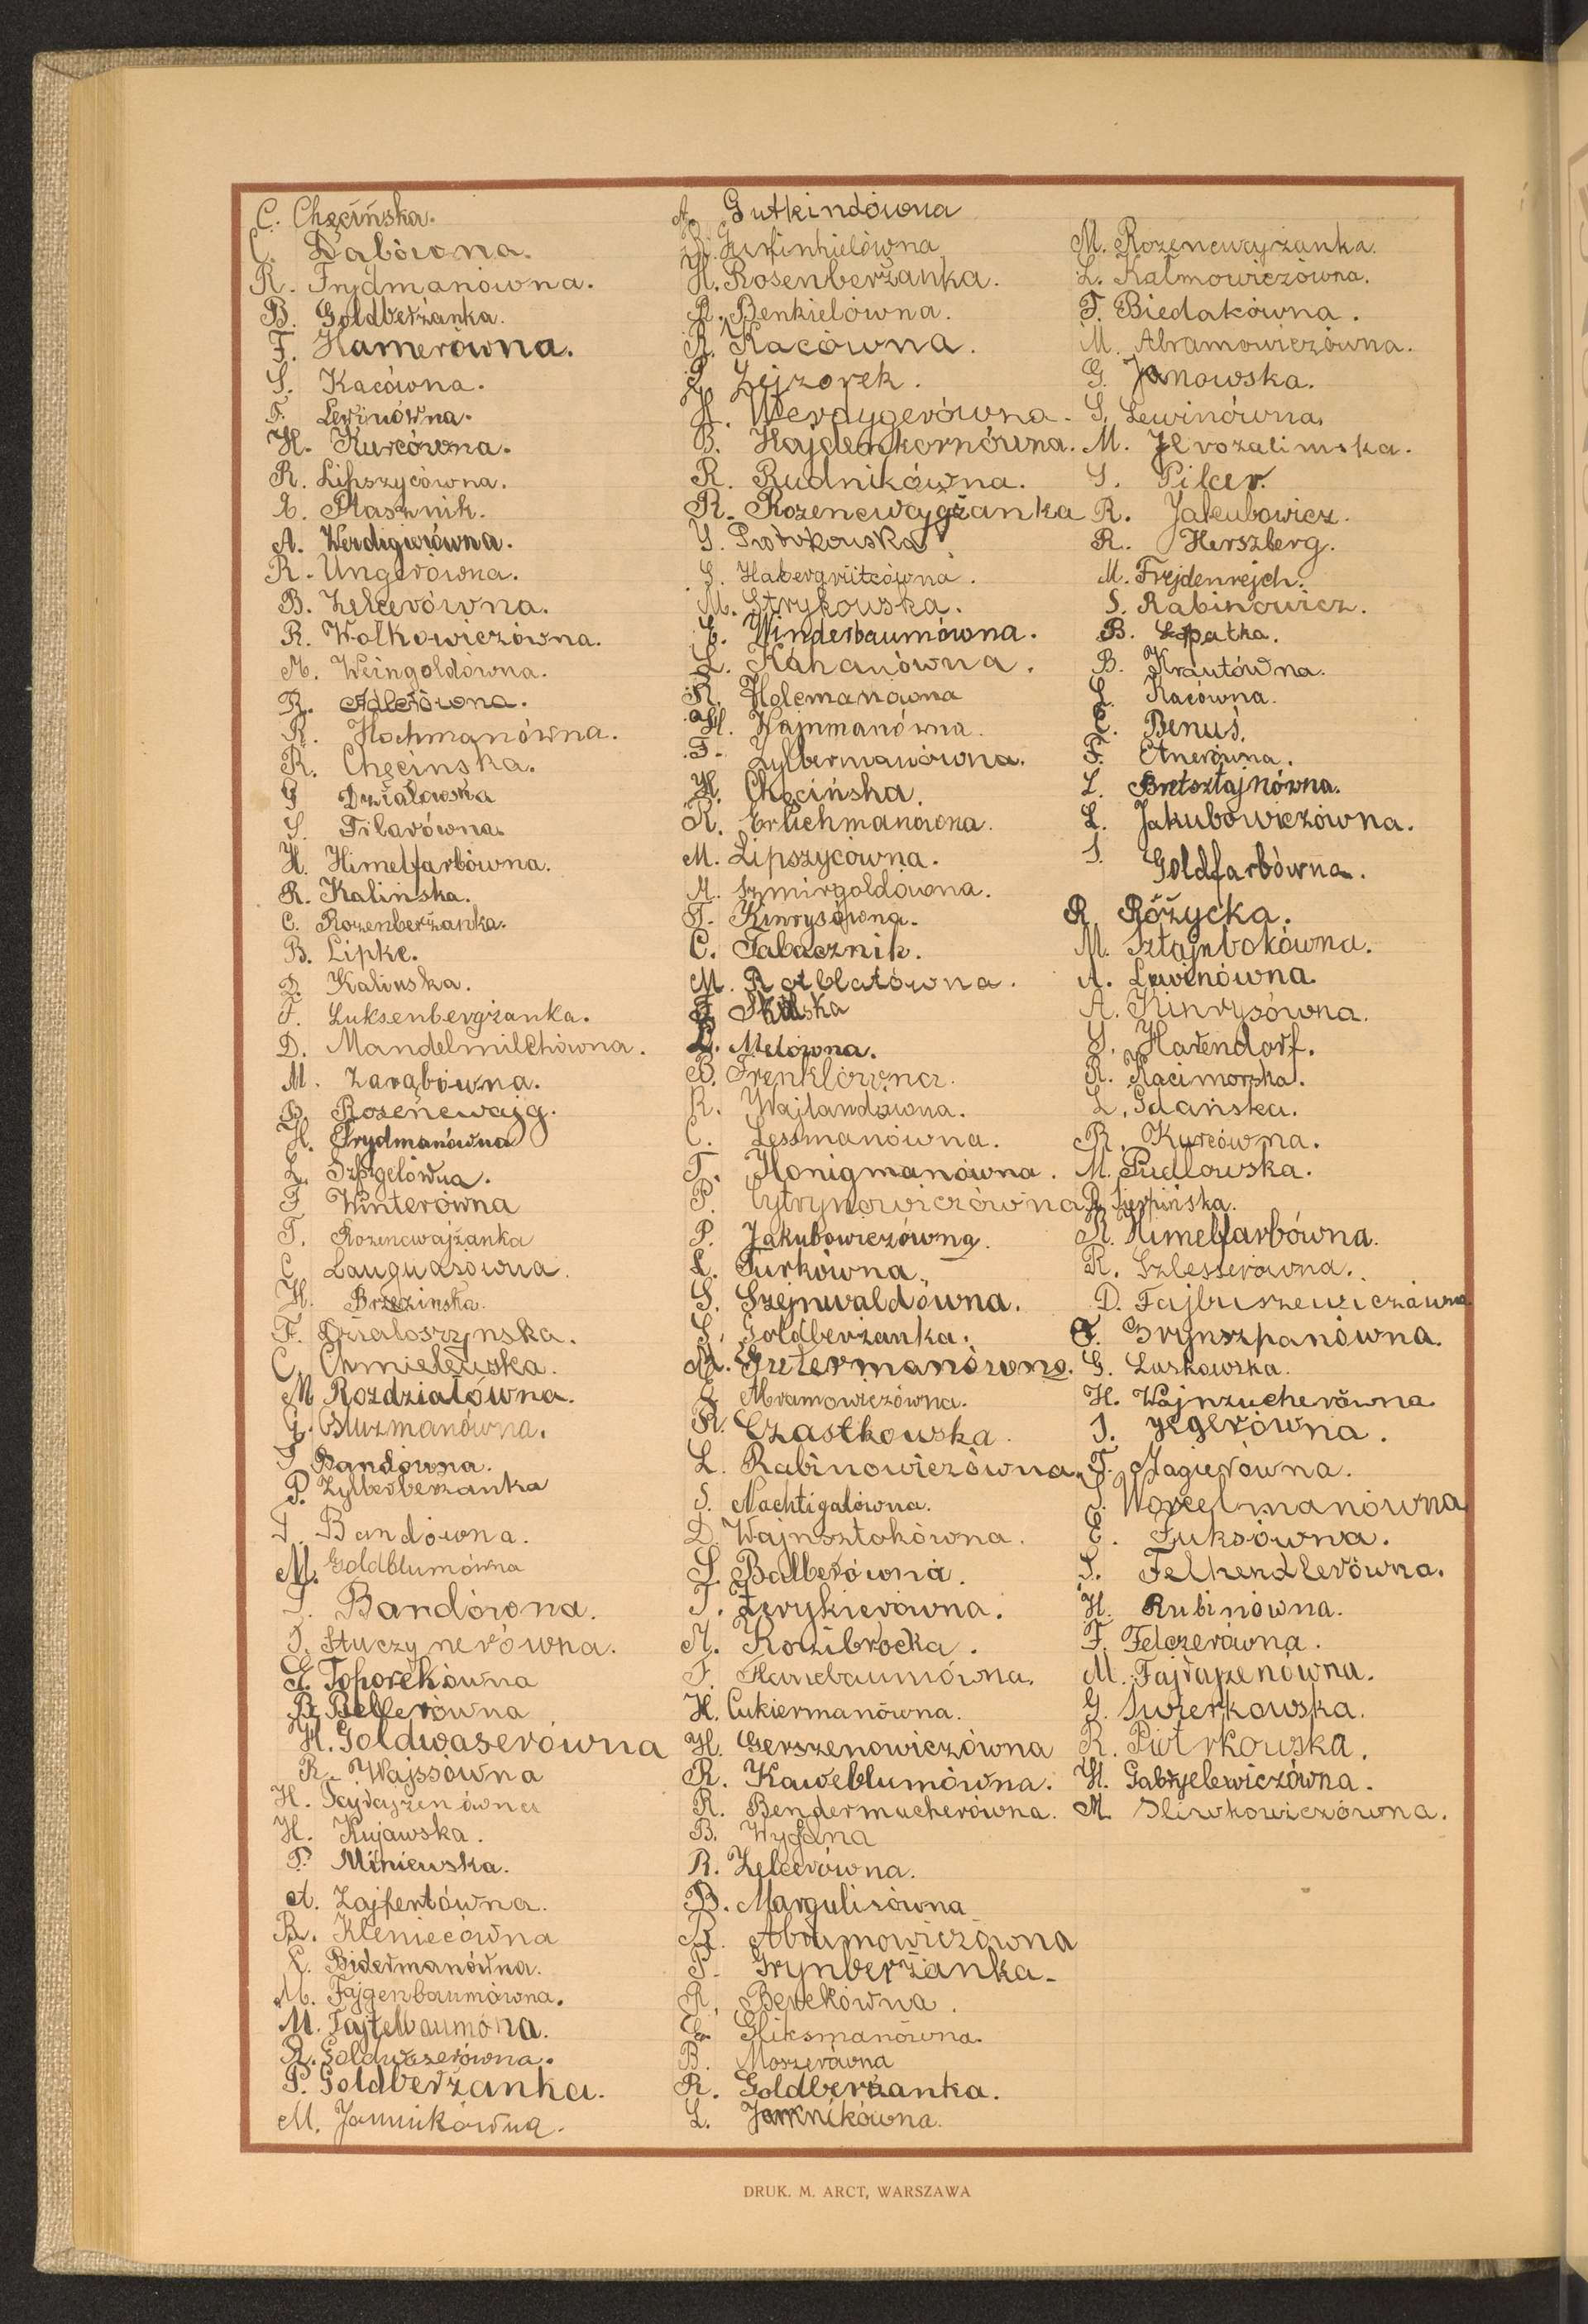 C. Chęcińska.
C. Dąbówna.
R. Frydmanówna.
B. Goldberżanka.
F. Hamerówna.
S. Kacówna.
F. Lewinówna.
H. Kurcówna.
R. Lipszycówna.
E. Ptasznik.
A. Werdigierówna.
R. Ungerówna.
B. Zelcerówna.
R. Wołkowiczówna.
M. Weingoldówna.
R. Adlerówna.
R. Hochmanówna.
R. Chęcińska.
G Działowska
S. Filarówna.
H. Himelfarbówna.
R. Kalinska.
C. Rozenberżanka.
B. Lipke.
D. Kalinska.
F. Luksenbergżanka.
D. Mandelmilchówna.
M. Zarąbówna.
B. Rozencwajg.
H. Frydmanówna
L. Szpigelówna.
F Winterówna
T. Rozencwajżanka
C. Languasówna.
H. Brzezinska.
F. Działoszynska.
C. Chmielewska.
M Rozdziałówna.
G. Gluzmanówna.
F Bandówna.
P. Zylberberżanka
F. Bandówna.
M. Goldblumówna
F. Bandówna.
S. Stuczynerówna.
G. Toporekówna
B. Bellerówna
H. Goldwaserówna
R. Wajsówna
H. Fajrajzenówna
H. Kujawska.
P. Miniewska.
A. Zajfertówna.
R. Kleniecówna
L. Bidermanówna.
M. Fajgenbaumówna.
M. Fajtelbaumóna.
R. Goldwaserówna.
P. Goldberżanka.
M. Jamnikówna.
A. Gutkindówna
H. Rosenberżanka.
R. Benkielówna.
R. Kacówna.
L. Lejzorek.
H. Werdygerówna.
B. Hajdenkornówna.
R. Rudnikówna.
R. Rozencwajgżanka
S. Piotrkowska
S. Habergritcówna.
M. Strykowska.
E. Winderbaumówna.
L. Kahanówna.
R. Holcmanówna
H. Wajnmanówna.
F. Zylbermanówna.
H. Chęcińska.
R. Erlichmanówna.
M. Lipszycówna.
M. Szmirgoldówna.
F. Kinrysówna.
C. Tabacznik.
M. Rotblatówna.
L. Melówna.
B. Frenklówna.
R. Wajlandówna.
C. Lessmanówna.
T. Honigmanówna.
P. Cytrynowiczówna
P. Jakubowiczówna.
L. Turkówna.
S. Szejnwaldówna.
S. Goldberżanka.
M. Gutermanówna.
G Abramowiczówna.
R. Czastkowska.
L. Rabinowiczówna.
S. Nachtigalówna.
D. Wajnsztokówna.
S. Balberówna.
T. Zerykierówna.
M. Kozibrocka.
F. Hanebaumówna.
H. Cukiermanówna.
H. Gerszenowiczówna
R. Kaweblumówna.
R. Bendermacherówna.
B. Wygdna
R. Zelcerówna.
B. Margulisówna
R. Abramowiczówna
P. Grynberżanka.
R. Berekówna.
E. Gliksmanówna.
B. Moszerówna
R. Goldberżanka.
L. Jamnikówna.
M. Rozencwajżanka.
L. Kalmowiczówna.
F. Biedakówna.
M. Abramowiczówna.
G. Janowska.
S. Lewinówna.
M. Jerozalimska.
S. Pilcer.
R. Jakubowicz.
R. Herszberg.
M. Frejdenrejch.
S. Rabinowicz.
B. Łopatka.
B. Krautówna.
L. Kacówna.
E. Benuś.
F. Etnerówna.
L. Bretsztajnówna.
L. Jakubowiczówna.
S. Goldfarbówna.
R. Różycka.
M. Sztajnbokówna.
A. Lewinówna.
A. Kinrysówna.
S. Harendorf.
R. Kacimorska.
L. Gdańska.
R. Kurcówna.
M. Pudłowska.
R. Sierpińska.
R. Himelfarbówna.
R. Szlesserówna.
D. Fajbuszewiczówna
F. Grynszpanówna.
G. Laskowska.
H. Wajncucherówna.
S. Jegerówna.
F. Magierówna.
S. Worcelmanówna
E. Fuksówna.
S. Felhendlerówna.
H. Rubinówna.
F. Felczerówna.
M. Fajrajzenówna.
G. Swierkowska.
R. Piotrkowska.
H. Gabryelewiczówna.
M. Sliwkowiczówna.
DRUK. M. ARCT, WARSZAWA